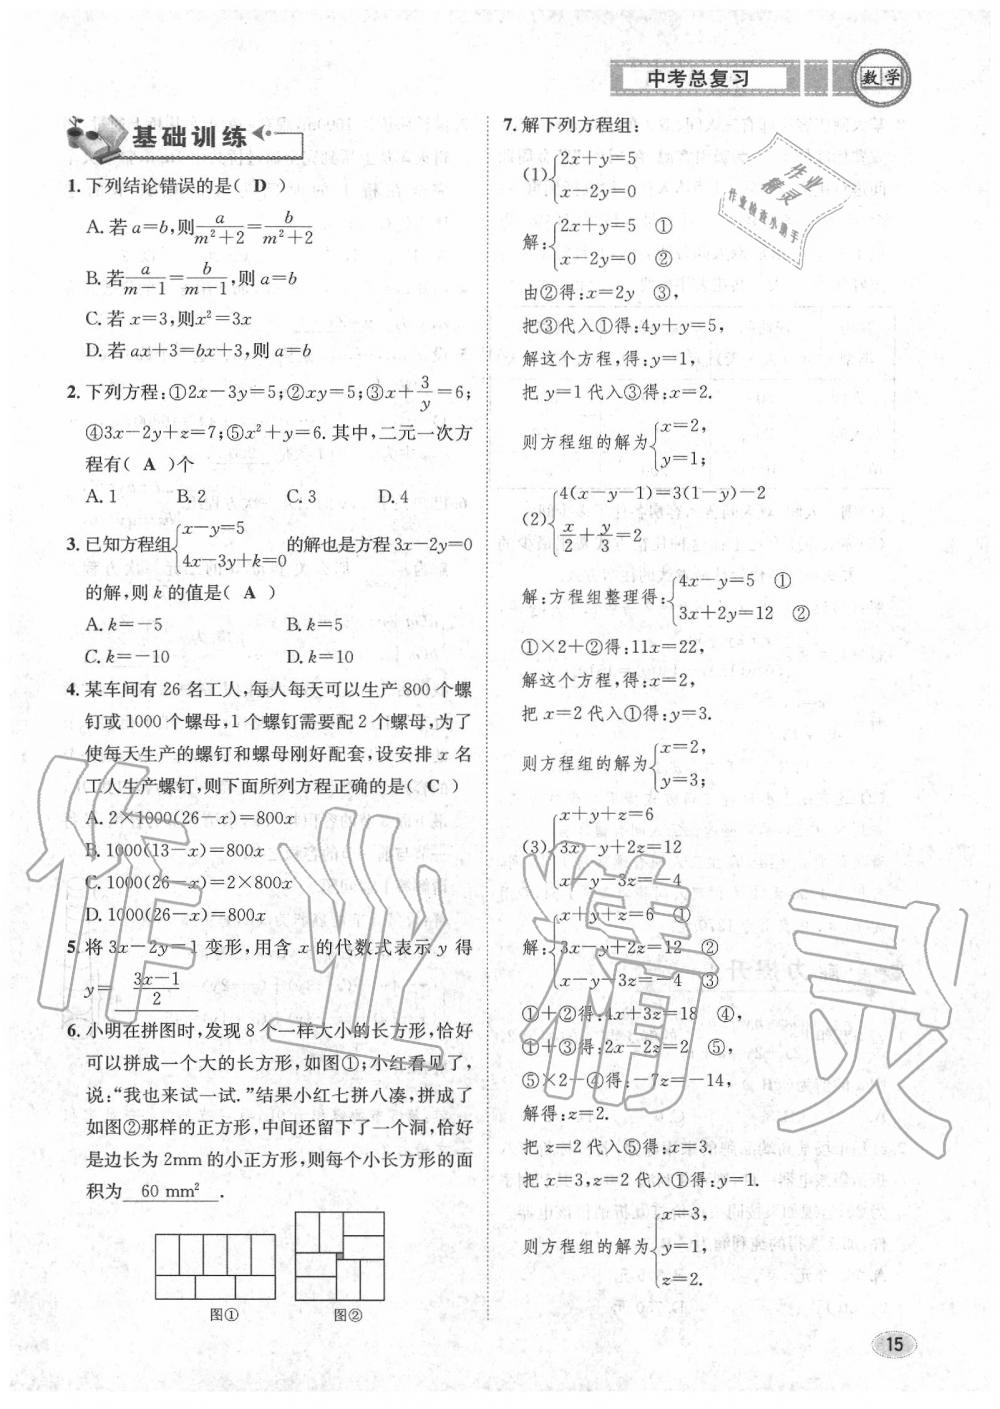 中考总复习
数学
基础训练
1. 下列结论错误的是( D )
A. 若 a=b,则 a/(m²+2)=b/(m²+2)
B. 若 a/(m-1)=b/(m-1),则 a=b
C. 若 x=3,则x²=3x
D. 若 ax+3=bx+3,则 a=b
2. 下列方程:①2x-3y=5;②xy=5;③x+3/y=6;
④3x-2y+z=7;⑤x²+y=6. 其中,二元一次方
程有( A )个
A. 1 B. 2 C. 3 D. 4
3. 已知方程组{x-y=5 4x-3y+k=0 的解也是方程 3x-2y=0
的解,则 k 的值是( A )
A. k=-5 B. k=5
C. k=-10 D. k=10
4. 某车间有 26 名工人,每人每天可以生产 800 个螺
钉或 1000 个螺母,1 个螺钉需要配 2 个螺母,为了
使每天生产的螺钉和螺母刚好配套,设安排 x 名
工人生产螺钉,则下面所列方程正确的是( C )
A. 2×1000(26-x)=800x
B. 1000(13-x)=800x
C. 1000(26-x)=2×800x
D. 1000(26-x)=800x
5. 将 3x-2y=1 变形,用含 x 的代数式表示 y 得
y= (3x-1)/2
6. 小明在拼图时,发现 8 个一样大小的长方形,恰好
可以拼成一个大的长方形,如图①;小红看见了,
说:“我也来试一试.”结果小红七拼八凑,拼成了
如图②那样的正方形,中间还留下了一个洞,恰好
是边长为 2mm 的小正方形,则每个小长方形的面
积为 60 mm² .
图① 图②
7. 解下列方程组:
(1){2x+y=5
x-2y=0
解:{2x+y=5 ①
x-2y=0 ②
由②得:x=2y ③,
把③代入①得:4y+y=5,
解这个方程,得:y=1,
把 y=1 代入③得:x=2.
则方程组的解为{x=2,
y=1;
(2){4(x-y-1)=3(1-y)-2
x/2+y/3=2
解:方程组整理得:{4x-y=5 ①
3x+2y=12 ②
①×2+②得:11x=22,
解这个方程,得:x=2,
把 x=2 代入①得:y=3.
则方程组的解为{x=2,
y=3;
(3){x+y+z=6
3x-y+2z=12
x-y-3z=-4
解:{x+y+z=6 ①
3x-y+2z=12 ②
x-y-3z=-4 ③
①+②得:4x+3z=18 ④,
①+③得:2x-2z=2 ⑤,
⑤×2-④得:-7z=-14,
解得:z=2.
把 z=2 代入⑤得:x=3.
把 x=3,z=2 代入①得:y=1.
则方程组的解为{x=3,
y=1,
z=2.
作业
精灵
作业检查小助手
作业精灵
15